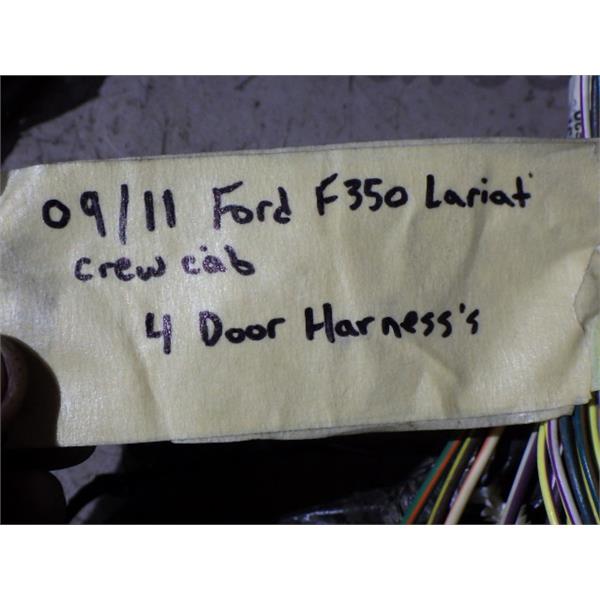 09/11 Ford F350 Lariat
crew cab
4 Door Harness's